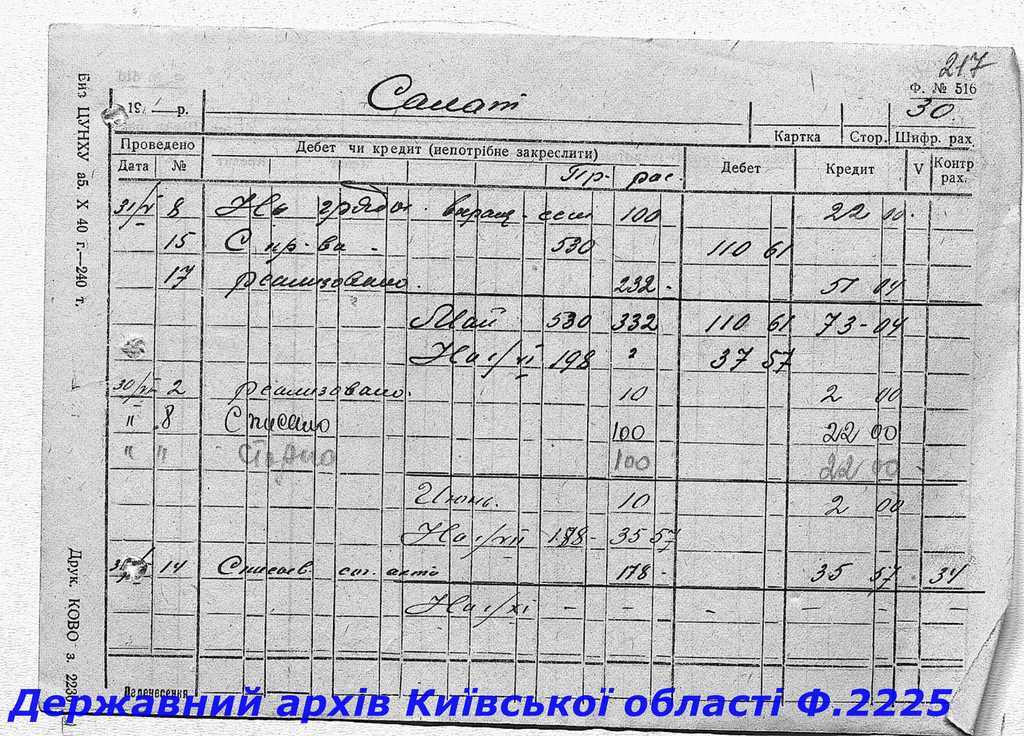 217
Ф. № 516
Салат
30
19 р.
Картка Стор. Шифр. рах.
Проведено Дебет чи кредит (непотрібне закреслити) Дебет Кредит V Контр рах.
Дата №
Пр. рас.
31/V 8 На грядки 100 22 00
15 С пр-ва 530 110 61
17 реализовано 232 51 04
Май 530 332 110 61 73-04
На 1/VI 198 37 57
30/VI 2 реализовано 10 2 00
" 8 Списано 100 22 00
" " Сторно 100 22 00
Июнь 10 2 00
На 1/VII 188 35 57
14 178 35 57 34
На 1/XI – – – – –
Перенесення
Биз ЦУНХУ аб. X 40 г.—240 т.
Друк. КОВО з. 223
Державний архів Київської області Ф.2225